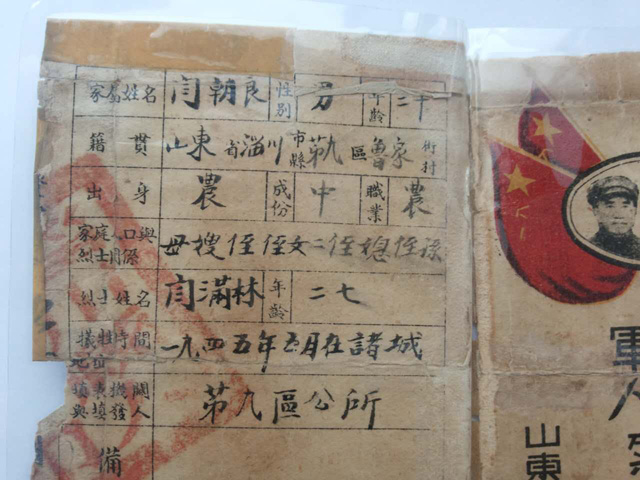 家屬姓名 闫朝良 性別 男 年齡 二十
籍貫 山東省淄川市縣第九區魯家街村
出身 農 成份 中 職業 農
家庭人口與烈士關係 母嫂侄侄女二侄媳侄孫
烈士姓名 闫滿林 年齡 二七
犧牲時間地 一九四五年五月在諸城
填表機關與填發人 第九區公所
備
軍人
山東
八一